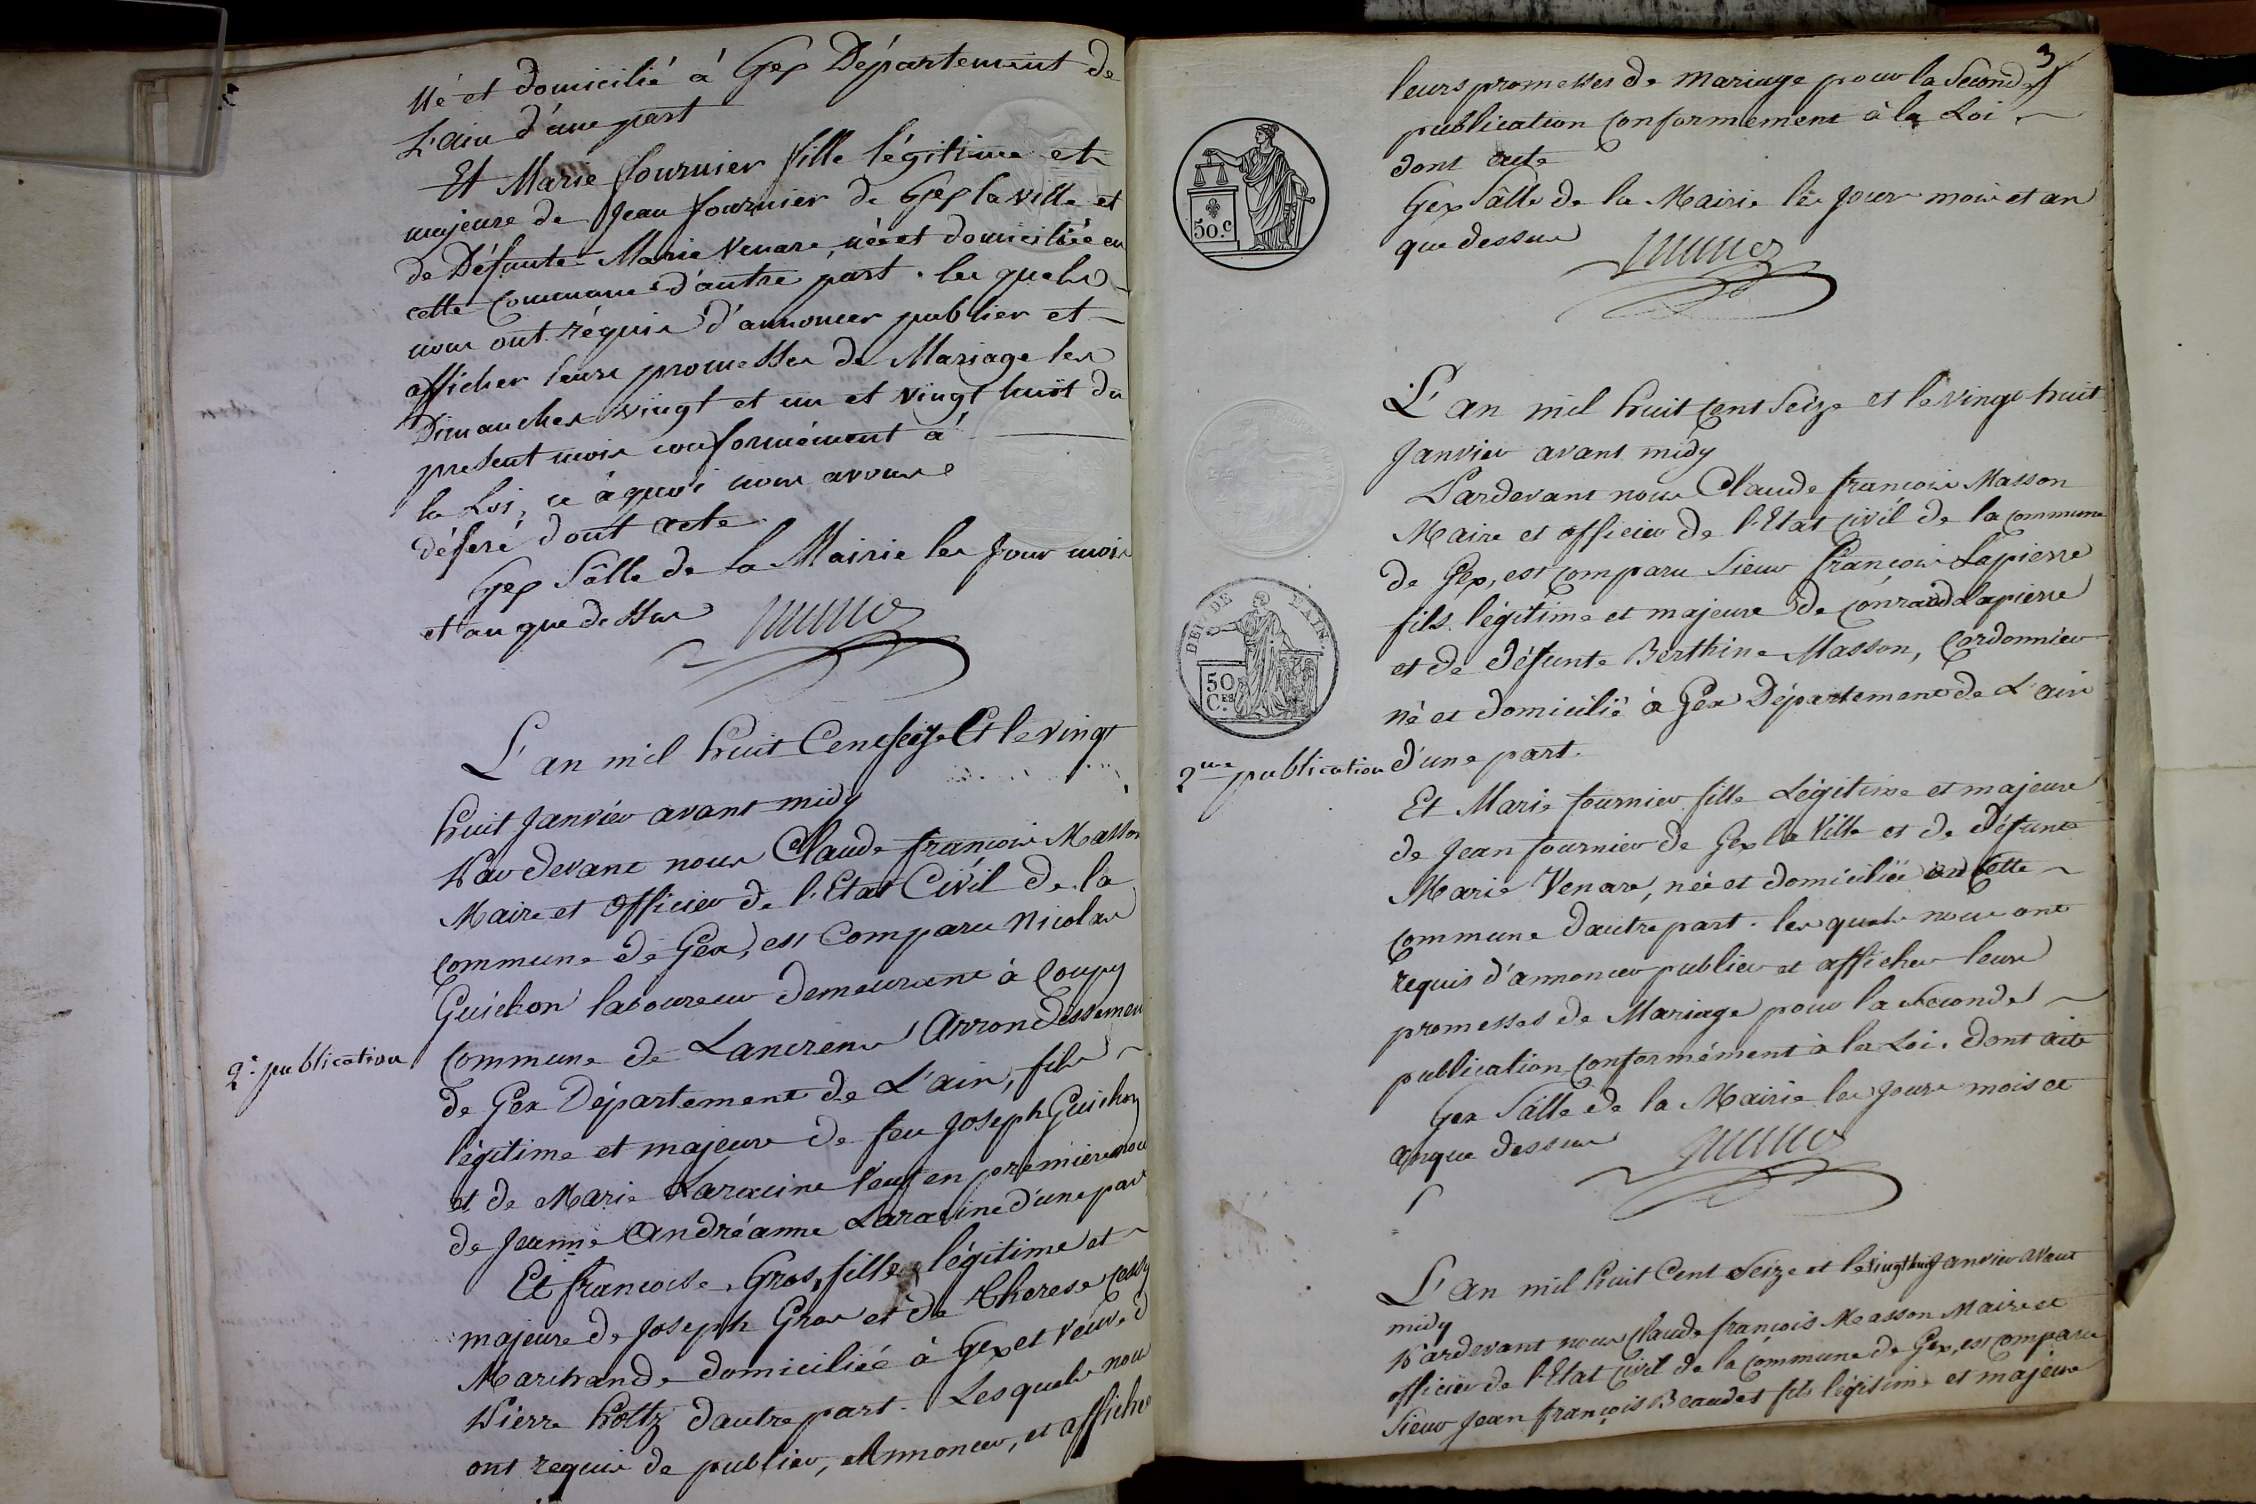 né et domicilié à Gex Département de
L'ain d'une part
Et Marie fournier fille légitime et
majeure de Jean fournier de Gex la ville et
de Défunte Marie Venare, née et domiciliée en
cette Commune d'autre part. les quels
nous ont réquis d'annoncer publier et
afficher leurs promesses de Mariage les
Dimanches vingt et un et vingt huit du
present mois conformément à
la Loi, ce à quoi nous avons
déferé dont acte
Gex Sâlle de la Mairie les Jour mois
et an que dessus
L'an mil huit Cent seize Et le vingt
huit Janvier avant midy
Pardevant nous Claude françois Masson
Maire et Officier de l'Etat Civil de la
commune de Gex, est Comparu Nicolas
Guichon laboureur demeurant à Coupy
2e. publication
Commune de Lancrens Arrondissement
de Gex Département de L'ain, fils
légitime et majeure de feu Joseph Guichon
et de Marie Laracine Veuf en première
de Jeanne Andréanne Laracine d'une part
Et francoise Gros, fille légitime et
majeure de Joseph Gros et de Therese Cessy
Marchande domiciliée à Gex et Veuve d
Pierre hottz dautre part. Les quels nous
ont requis de publier, Annoncer, et affiche
3
leurs promesses de mariage pour la seconde
publication conformement à la Loi.
dont acte
Gex Sâlle de la Mairie les Jour mois et an
que dessus
50.c
L'an mil huit Cent Seize et le vingt huit
Janvier avant midy
Pardevant nous Claude francois Masson
Maire et officier de l'Etat civil de la commune
de Gex, est comparu Sieur françois Lapierre
fils légitime et majeure de Conrard Lapierre
et de défunte Berthine Masson, Cordonnier
né et domicilié à Gex Département de L'ain
d'une part.
DEP. DE L'AIN.
50
C.es
2me publication
Et Marie fournier fille Légitime et majeure
de Jean fournier de Gex la Ville et de défunte
Marie Venare, née et domiciliée en cette
commune dautre part. les quels nous ont
requis d'annoncer publier et afficher leurs
promesses de Mariage pour la seconde
publication conformément à la Loi. Dont acte
Gex Sâlle de la Mairie les Jour mois et
an que dessus
L'an mil huit Cent Seize et le vingt huit Janvier avant
midy
Pardevant nous Claude françois Masson Maire et
officier de l'Etat civil de la commune de Gex, est comparu
Sieur Jean françois Beaudet fils légitime et majeure